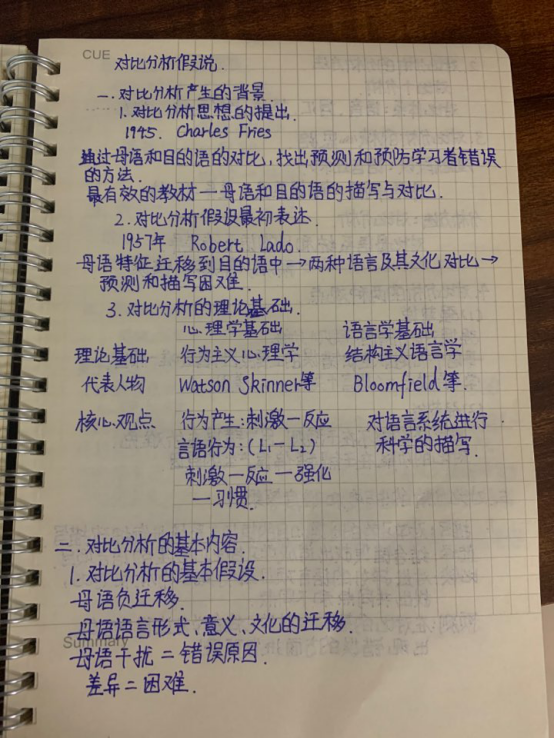 CUE
对比分析假说.
一.对比分析产生的背景.
1.对比分析思想的提出.
1945. Charles Fries
通过母语和目的语的对比,找出预测和预防学习者错误
的方法.
最有效的教材一母语和目的语的描写与对比.
2.对比分析假设最初表达.
1957年 Robert Lado.
母语特征迁移到目的语中→两种语言及其文化对比→
预测和描写困难.
3.对比分析的理论基础.
心理学基础 语言学基础
理论基础 行为主义心理学 结构主义语言学
代表人物 Watson Skinner等 Bloomfield等.
核心观点 行为产生:刺激一反应 对语言系统进行
言语行为:(L1-L2) 科学的描写.
刺激一反应一强化
一习惯.
二.对比分析的基本内容.
1.对比分析的基本假设.
母语负迁移.
母语语言形式、意义、文化的迁移.
Summary
母语干扰=错误原因.
差异=困难.